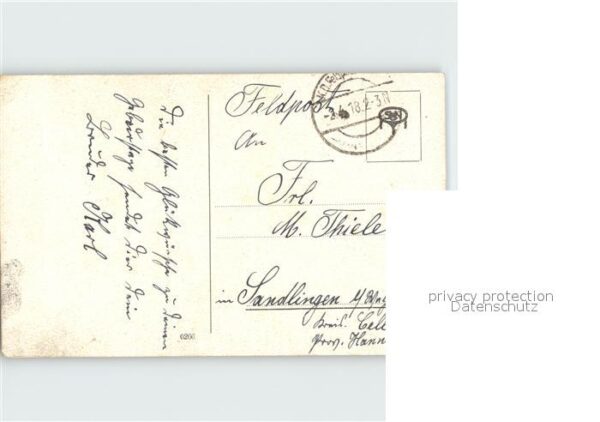 Die besten Glückwünsche zu deinem
Geburtstage sendet dier dein
Bruder Karl
Feldpost
An
Frl.
M. Thiele
in Sandlingen
Kreis. Celle
Prov. Hann
6266
-2.4.18.2-3N
privacy protection
Datenschutz